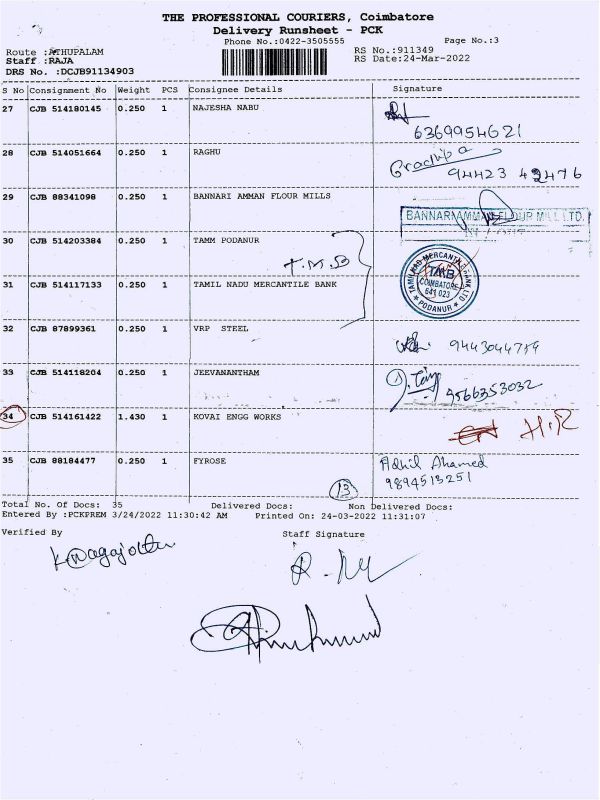 THE PROFESSIONAL COURIERS, Coimbatore
Delivery Runsheet - PCK
Phone No.:0422-3505555 Page No.:3
Route :ATHUPALAM RS No.:911349
Staff :RAJA RS Date:24-Mar-2022
DRS No. :DCJB91134903
S No Consignment No Weight PCS Consignee Details Signature
27 CJB 514180145 0.250 1 NAJESHA NABU
6369954621
28 CJB 514051664 0.250 1 RAGHU
94423 42476
29 CJB 88341098 0.250 1 BANNARI AMMAN FLOUR MILLS
BANNARI AMMAN FLOUR MILL LTD.
30 CJB 514203384 0.250 1 TAMM PODANUR
T.M.B
TAMILNAD MERCANTILE BANK LTD
TMB
COIMBATORE
641 023
PODANUR
31 CJB 514117133 0.250 1 TAMIL NADU MERCANTILE BANK
32 CJB 87899361 0.250 1 VRP STEEL
33 CJB 514118204 0.250 1 JEEVANANTHAM
9566353032
34 CJB 514161422 1.430 1 KOVAI ENGG WORKS
H.R
35 CJB 88184477 0.250 1 FYROSE
Adhil Ahamed
9894513251
13
Total No. Of Docs: 35 Delivered Docs: Non Delivered Docs:
Entered By :PCKPREM 3/24/2022 11:30:42 AM Printed On: 24-03-2022 11:31:07
Verified By Staff Signature